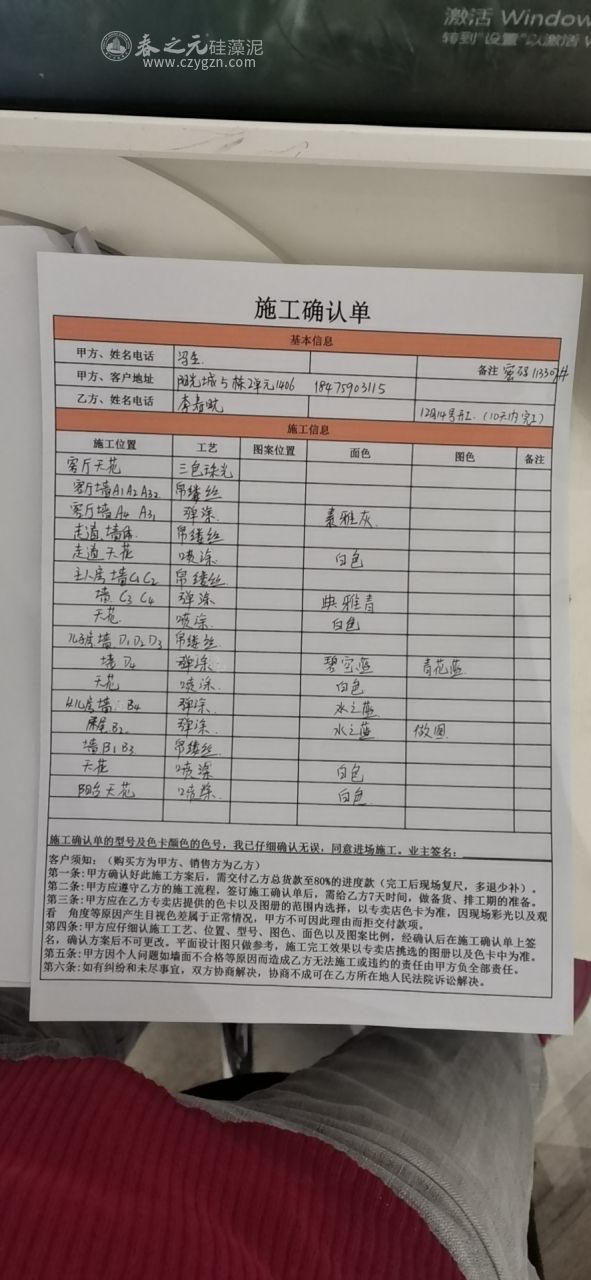 激活 Window
转到"设置"以激活 W
春之元硅藻泥
www.czygzn.com
施工确认单
基本信息
甲方、姓名电话 冯生 备注 密码 113307#
甲方、客户地址 阳光城5栋2单元1406 18475903115
乙方、姓名电话 李春 12月14号开工.(10天内完工)
施工信息
施工位置 工艺 图案位置 面色 图色 备注
客厅天花 三色珠光
客厅墙A1 A2 A32 吊缕丝
客厅墙A4 A31 弹涂 素雅灰.
走道.墙体 吊缕丝
走道天花 喷涂 白色
主人房墙C1 C2 吊缕丝.
墙 C3 C4 弹涂 典雅青
天花 喷涂. 白色
儿子房墙 D1 D2 D3 吊缕丝
墙 D4 弹涂 碧空蓝 青花蓝.
天花 喷涂. 白色
女儿房墙: B4 弹涂 水之蓝
B2 弹涂 水之蓝 做图
墙B1 B3 吊缕丝
天花 喷涂 白色
阳台天花 喷涂. 白色
施工确认单的型号及色卡颜色的色号，我已仔细确认无误，同意进场施工。业主签名：
客户须知：（购买方为甲方、销售方为乙方）
第一条：甲方确认好此施工方案后，需交付乙方总货款至80%的进度款（完工后现场复尺，多退少补）。
第二条：甲方应遵守乙方的施工流程，签订施工确认单后，需给乙方7天时间，做备货、排工期的准备。
第三条：甲方应在乙方专卖店提供的色卡以及图册的范围内选择，以专卖店色卡为准，因现场彩光以及观
看 角度等原因产生目视色差属于正常情况，甲方不可因此理由而拒交付款项。
第四条：甲方应仔细认施工工艺、位置、型号、图色、面色以及图案比例，经确认后在施工确认单上签
名，确认方案后不可更改。平面设计图只做参考，施工完工效果以专卖店挑选的图册以及色卡中为准。
第五条：甲方因个人问题如墙面不合格等原因而造成乙方无法施工或违约的责任由甲方负全部责任。
第六条：如有纠纷和未尽事宜，双方协商解决，协商不成可在乙方所在地人民法院诉讼解决。